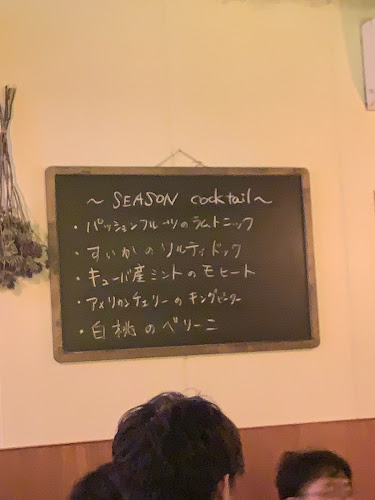 ~ SEASON cocktail ~
・パッションフルーツのラムトニック
・すいかのソルティドック
・キューバ産ミントのモヒート
・アメリカンチェリーのキングピーター
・白桃のベリーニ